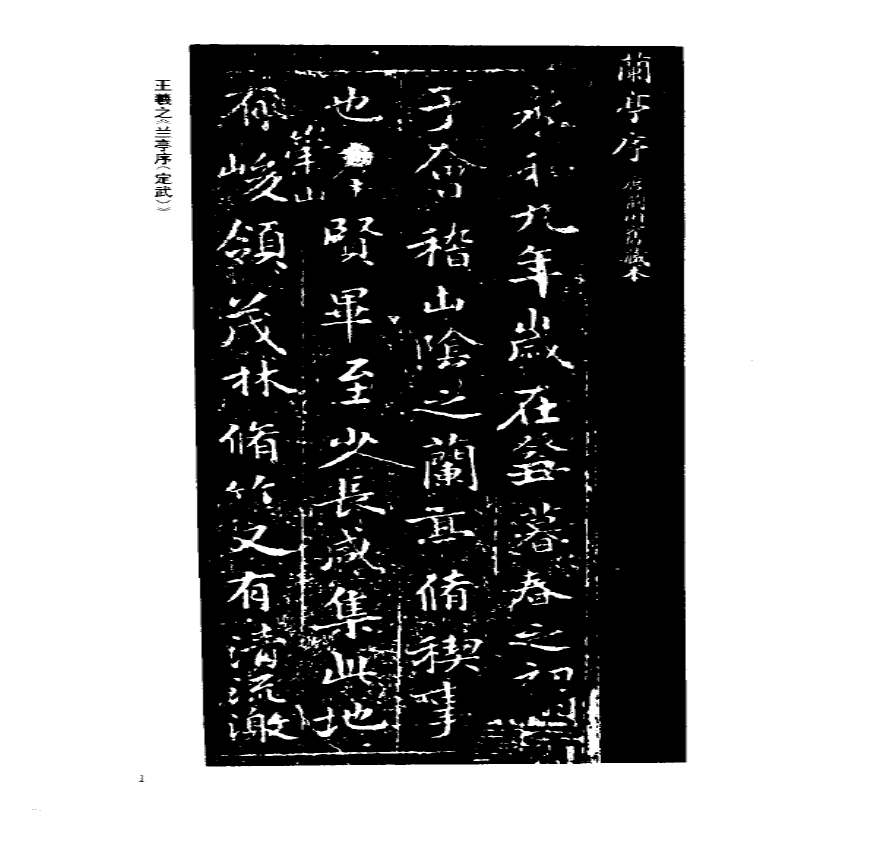 蘭亭序 唐荊川舊藏本
永和九年歲在癸丑暮春之初
于會稽山陰之蘭亭脩稧事
也羣賢畢至少長咸集此地
崇山
有峻領茂林脩竹又有清流激
王羲之《兰亭序（定武）》
1